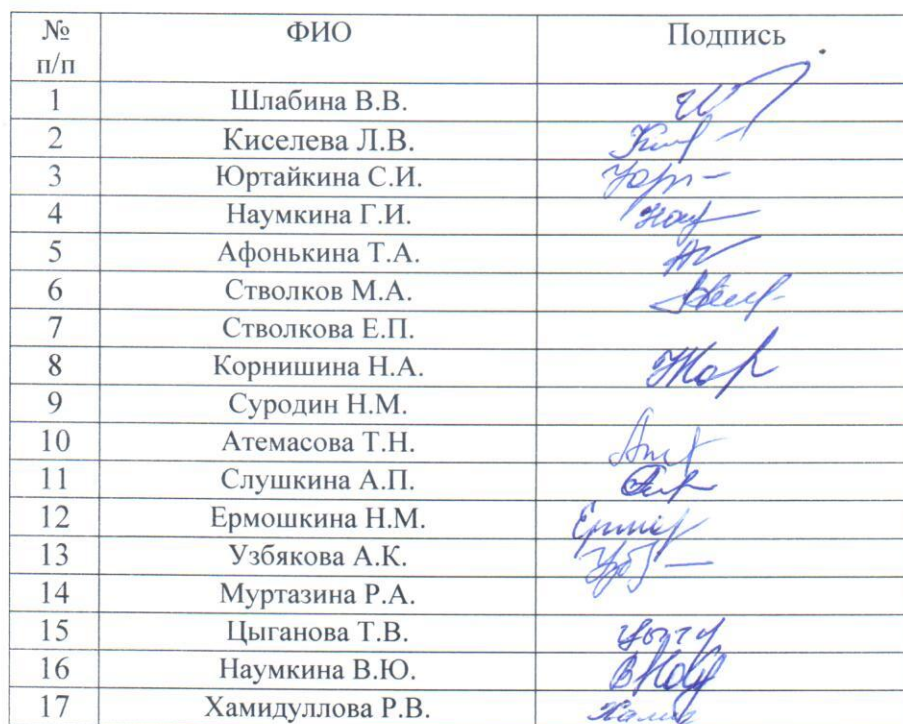 № п/п ФИО Подпись
1 Шлабина В.В.
2 Киселева Л.В.
3 Юртайкина С.И.
4 Наумкина Г.И.
5 Афонькина Т.А.
6 Стволков М.А.
7 Стволкова Е.П.
8 Корнишина Н.А.
9 Суродин Н.М.
10 Атемасова Т.Н.
11 Слушкина А.П.
12 Ермошкина Н.М.
13 Узбякова А.К.
14 Муртазина Р.А.
15 Цыганова Т.В.
16 Наумкина В.Ю.
17 Хамидуллова Р.В.